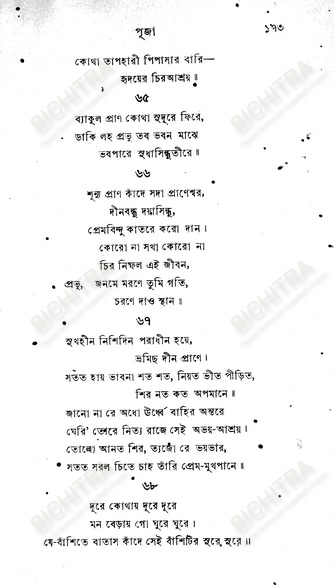 পূজা ১৮৩
কোথা তাপহারী পিপাসার বারি—
হৃদয়ের চিরআশ্রয় ॥
৬৫
ব্যাকুল প্রাণ কোথা সুদূরে ফিরে,
ডাকি লহ প্রভু তব ভবন মাঝে
ভবপারে সুধাসিন্ধুতীরে ॥
৬৬
শূন্য প্রাণ কাঁদে সদা প্রাণেশ্বর,
দীনবন্ধু দয়াসিন্ধু,
প্রেমবিন্দু কাতরে করো দান।
কোরো না সখা কোরো না
চির নিষ্ফল এই জীবন,
প্রভু, জনমে মরণে তুমি গতি,
চরণে দাও স্থান ॥
৬৭
সুখহীন নিশিদিন পরাধীন হয়ে,
ভ্রমিছ দীন প্রাণে।
সতত হায় ভাবনা শত শত, নিয়ত ভীত পীড়িত,
শির নত কত অপমানে ॥
জানো না রে অধো ঊর্ধ্বে বাহির অন্তরে
ঘেরি' তোরে নিত্য রাজে সেই অভয়-আশ্রয়।
তোলো আনত শির, ত্যজো রে ভয়ভার,
সতত সরল চিতে চাহ তাঁরি প্রেম-মুখপানে ॥
৬৮
দূরে কোথায় দূরে দূরে
মন বেড়ায় গো ঘুরে ঘুরে।
যে-বাঁশিতে বাতাস কাঁদে সেই বাঁশিটির সুরে সুরে ॥
BICHITRA
BICHITRA
BICHITRA
BICHITRA
BICHITRA
BICHITRA